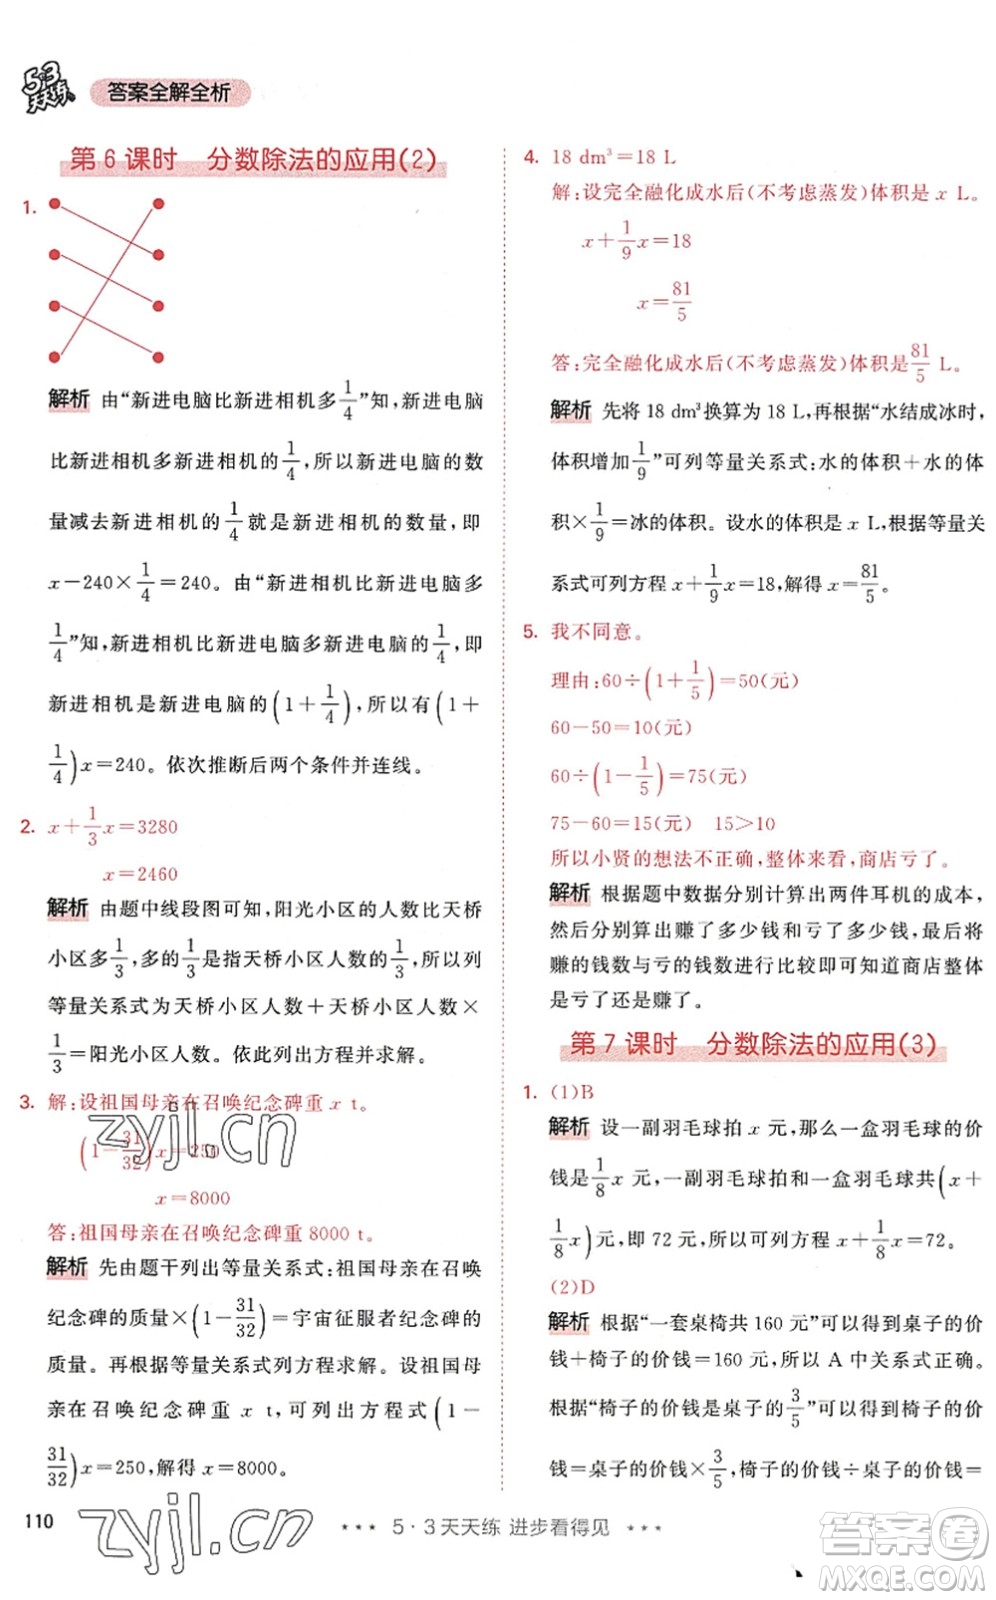 5·3
天天练
答案全解全析
第 6 课时　分数除法的应用(2)
1.
解析 由“新进电脑比新进相机多1/4”知,新进电脑
比新进相机多新进相机的1/4,所以新进电脑的数
量减去新进相机的1/4就是新进相机的数量,即
x－240×1/4＝240。由“新进相机比新进电脑多
1/4”知,新进相机比新进电脑多新进电脑的1/4,即
新进相机是新进电脑的(1＋1/4),所以有(1＋
1/4)x＝240。依次推断后两个条件并连线。
2. x＋1/3x＝3280
x＝2460
解析 由题中线段图可知,阳光小区的人数比天桥
小区多1/3,多的1/3是指天桥小区人数的1/3,所以列
等量关系式为天桥小区人数＋天桥小区人数×
1/3＝阳光小区人数。依此列出方程并求解。
3. 解:设祖国母亲在召唤纪念碑重 x t。
(1－31/32)x＝250
x＝8000
答:祖国母亲在召唤纪念碑重 8000 t。
解析 先由题干列出等量关系式:祖国母亲在召唤
纪念碑的质量×(1－31/32)＝宇宙征服者纪念碑的
质量。再根据等量关系式列方程求解。设祖国母
亲在召唤纪念碑重 x t,可列出方程式(1－
31/32)x＝250,解得 x＝8000。
4. 18 dm³＝18 L
解:设完全融化成水后(不考虑蒸发)体积是 x L。
x＋1/9x＝18
x＝81/5
答:完全融化成水后(不考虑蒸发)体积是81/5 L。
解析 先将 18 dm³换算为 18 L,再根据“水结成冰时,
体积增加1/9”可列等量关系式:水的体积＋水的体
积×1/9＝冰的体积。设水的体积是 x L,根据等量关
系式可列方程 x＋1/9x＝18,解得 x＝81/5。
5. 我不同意。
理由:60÷(1＋1/5)＝50(元)
60－50＝10(元)
60÷(1－1/5)＝75(元)
75－60＝15(元)　15＞10
所以小贤的想法不正确,整体来看,商店亏了。
解析 根据题中数据分别计算出两件耳机的成本,
然后分别算出赚了多少钱和亏了多少钱,最后将
赚的钱数与亏的钱数进行比较即可知道商店整体
是亏了还是赚了。
第 7 课时　分数除法的应用(3)
1. (1)B
解析 设一副羽毛球拍 x 元,那么一盒羽毛球的价
钱是1/8x 元,一副羽毛球拍和一盒羽毛球共(x＋
1/8x)元,即 72 元,所以可列方程 x＋1/8x＝72。
(2)D
解析 根据“一套桌椅共 160 元”可以得到桌子的价
钱＋椅子的价钱＝160 元,所以 A 中关系式正确。
根据“椅子的价钱是桌子的3/5”可以得到椅子的价
钱＝桌子的价钱×3/5,椅子的价钱÷桌子的价钱＝
110
★★★ 5·3天天练 进步看得见 ★★★
zyjl.cn
zyjl.cn
答案圈
MXQE.COM